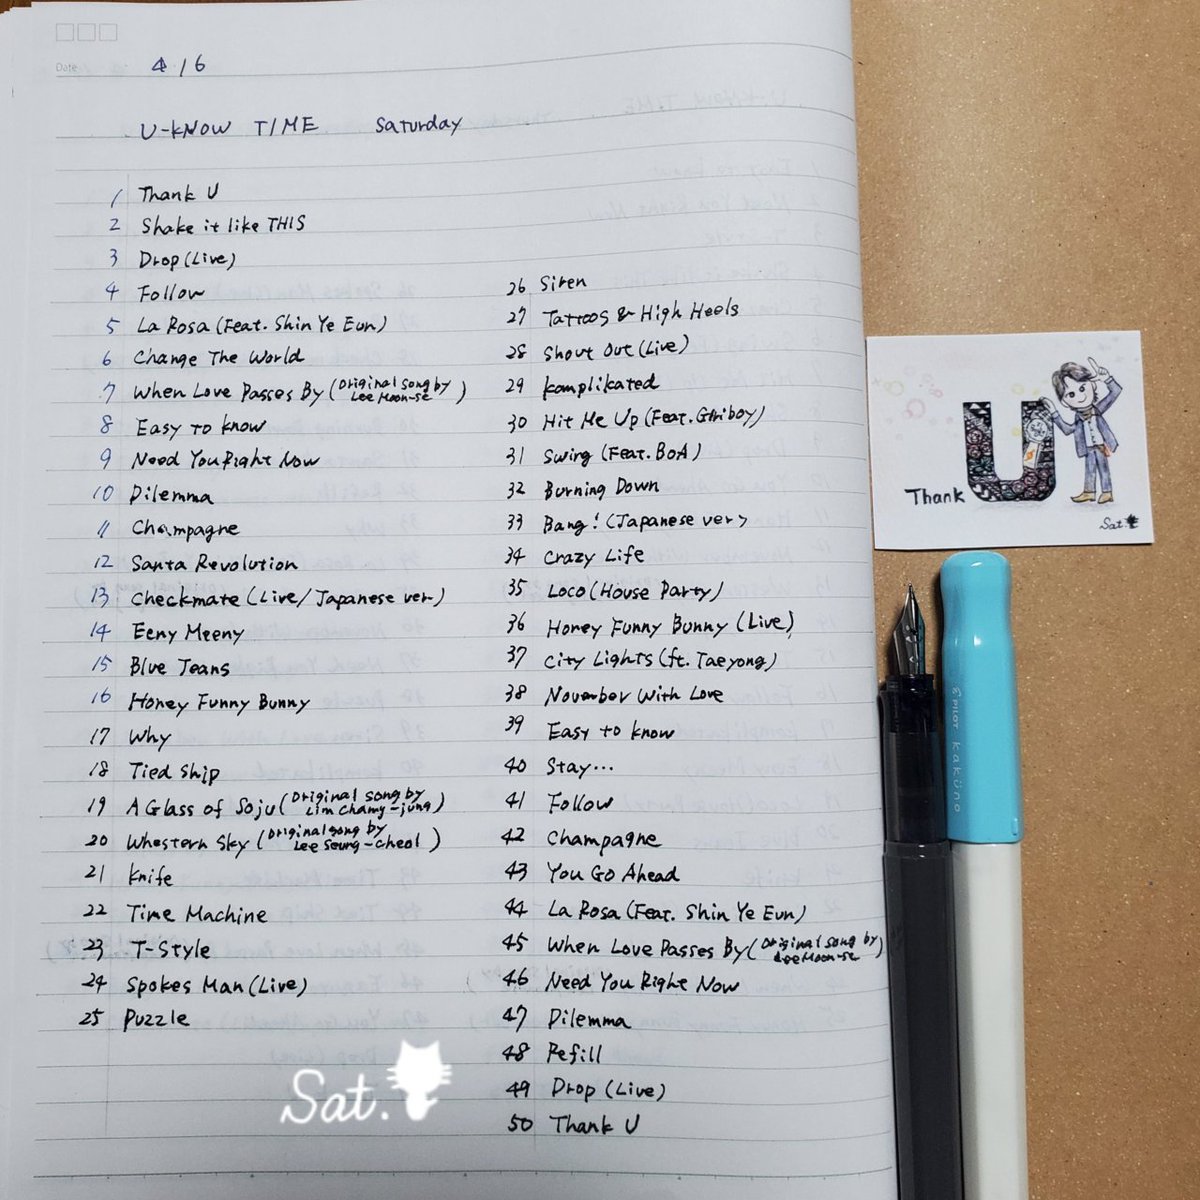 Date
4/6
U-KNOW TIME Saturday
1 Thank U
2 Shake it like THIS
3 Drop (Live)
4 Follow
5 La Rosa (Feat. Shin Ye Eun)
6 Change The World
7 When Love Passes By (Original song by Lee Moon-se)
8 Easy to know
9 Need You Right Now
10 Dilemma
11 Champagne
12 Santa Revolution
13 Checkmate (Live/Japanese ver)
14 Eeny Meeny
15 Blue Jeans
16 Honey Funny Bunny
17 Why
18 Tied Ship
19 A Glass of Soju (Original song by Lim Chamy-jung)
20 Whestern Sky (Original song by Lee Seung-cheol)
21 Knife
22 Time Machine
23 T-Style
24 Spokes Man (Live)
25 Puzzle
26 Siren
27 Tattoos & High Heels
28 Shout Out (Live)
29 Komplikated
30 Hit Me Up (Feat. Giriboy)
31 Swing (Feat. BoA)
32 Burning Down
33 Bang! (Japanese ver)
34 Crazy Life
35 Loco (House Party)
36 Honey Funny Bunny (Live)
37 City Lights (ft. Taeyong)
38 November With Love
39 Easy to know
40 Stay...
41 Follow
42 Champagne
43 You Go Ahead
44 La Rosa (Feat. Shin Ye Eun)
45 When Love Passes By (Original song by Lee Moon-se)
46 Need You Right Now
47 Dilemma
48 Refill
49 Drop (Live)
50 Thank U
Sat.
Thank U
Sat
PILOT kaküno